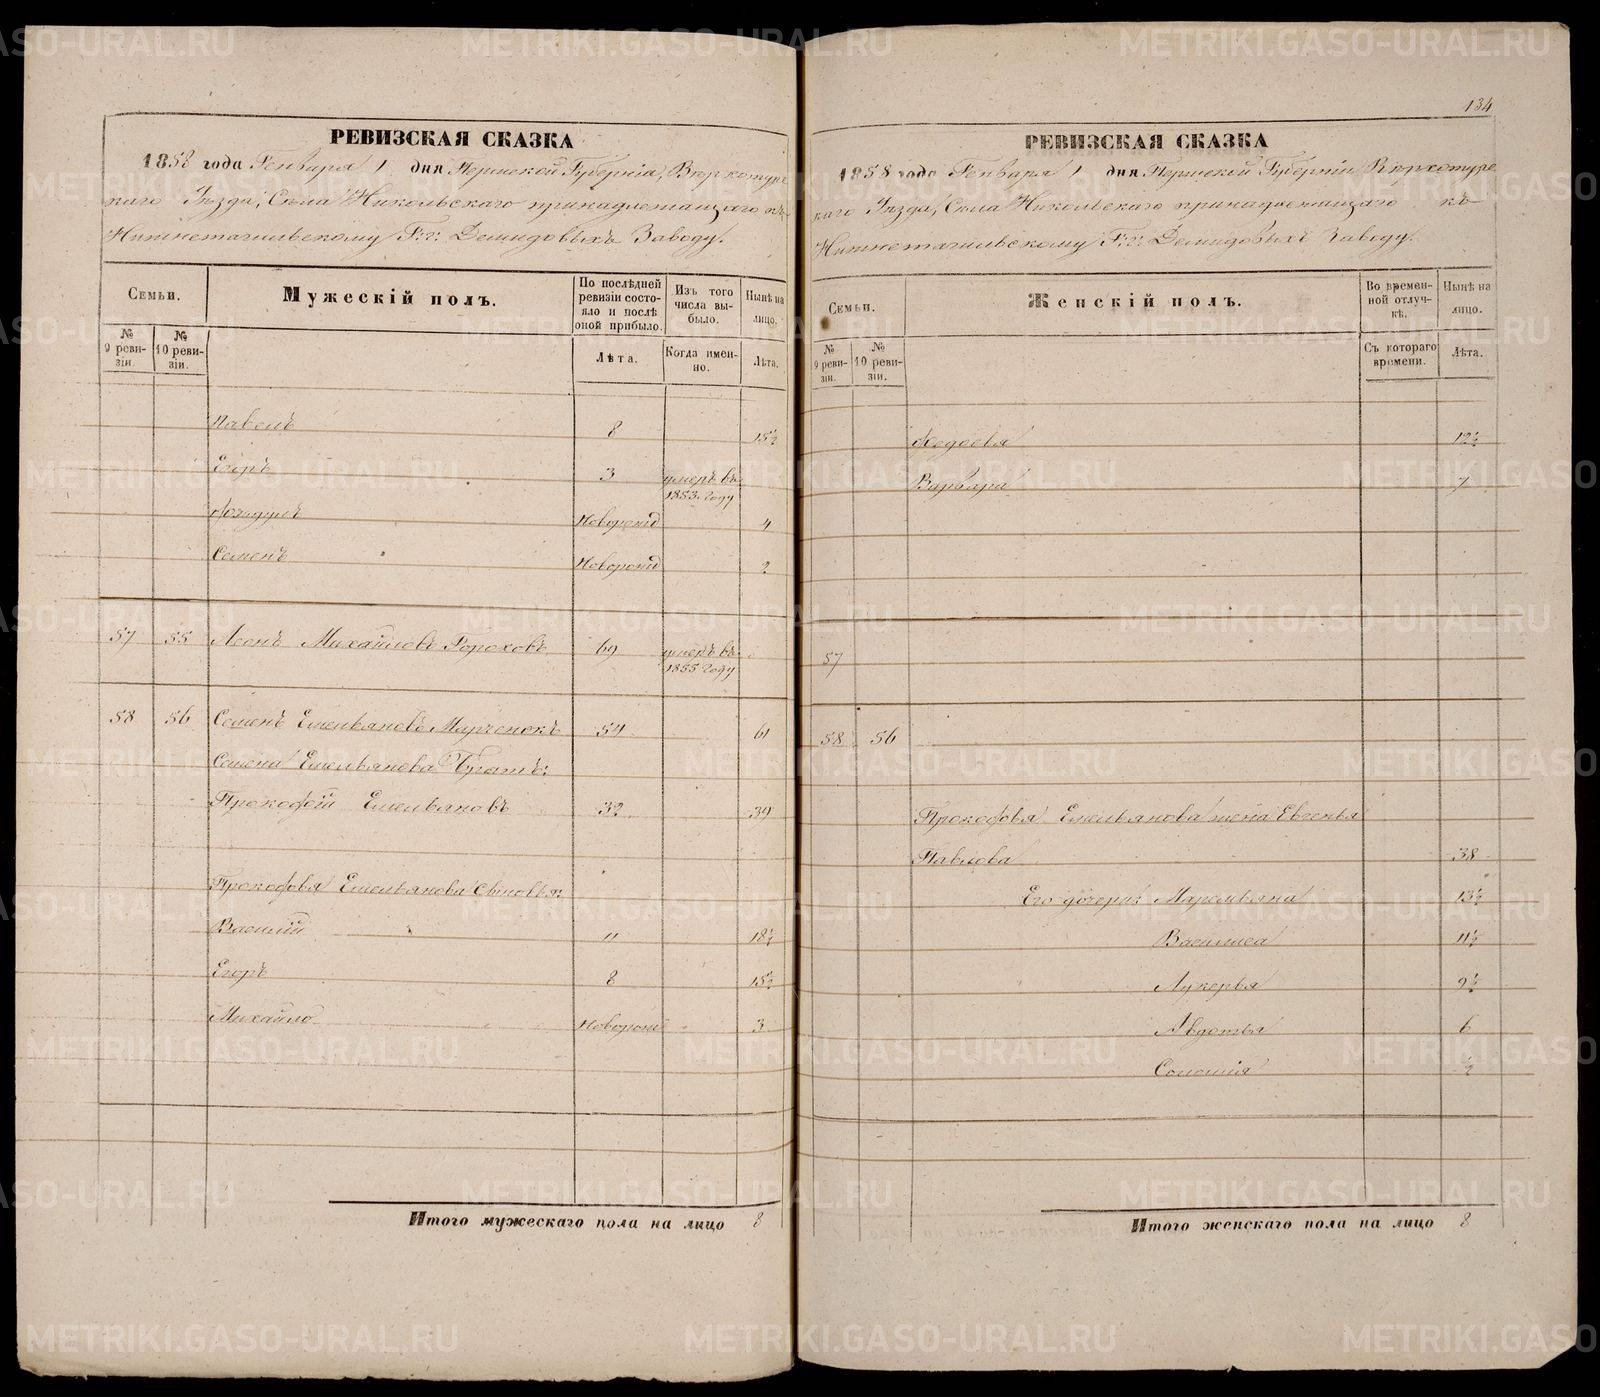 РЕВИЗСКАЯ СКАЗКА
1858 года Генваря 1 дня Пермской Губерніи, Верхотурс
каго Уѣзда, Села Никольскаго принадлежащаго къ
Нижнетагильскому Г.г. Демидовыхъ Заводу.
Семьи.
№ 9 ревизіи.
№ 10 ревизіи.
Мужескій полъ.
По послѣдней
ревизіи состо-
яло и послѣ
оной прибыло.
Лѣта.
Изъ того
числа вы-
было.
Когда имен-
но.
Нынѣ на
лицо.
Лѣта.
Павелъ 8 15½
Егоръ 3 умеръ въ
1853 году
Новорожд 4
Семенъ Новорожд 2
57 55 Леонъ Михайловъ Гороховъ 69 умеръ въ
1855 году
58 56 Семенъ Емельяновъ Марченокъ 54 61
Семена Емельянова Братъ:
Прокофій Емельяновъ 32 39
Прокофья Емельянова Сыновья:
Василій 11 18½
Егоръ 8 15½
Михайло Новорож 3
Итого мужескаго пола на лицо 8
134
РЕВИЗСКАЯ СКАЗКА
1858 года Генваря 1 дня Пермской Губерніи Верхотурс
каго Уѣзда, Села Никольскаго принадлежащаго къ
Нижнетагильскому Г.г. Демидовыхъ Заводу.
Семьи.
№ 9 ревизіи.
№ 10 ревизіи.
Женскій полъ.
Во времен-
ной отлуч-
кѣ.
Съ котораго
времени.
Нынѣ на
лицо.
Лѣта.
Федосья 12½
Варвара 7
57
58 56
Прокофья Емельянова жена Евгенья
Павлова 38
Его дочери: Маремьяна 13½
Василиса 11½
Лукерья 9½
Авдотья 6
Соломия ½
Итого женскаго пола на лицо 8
METRIKI.GASO-URAL.RU